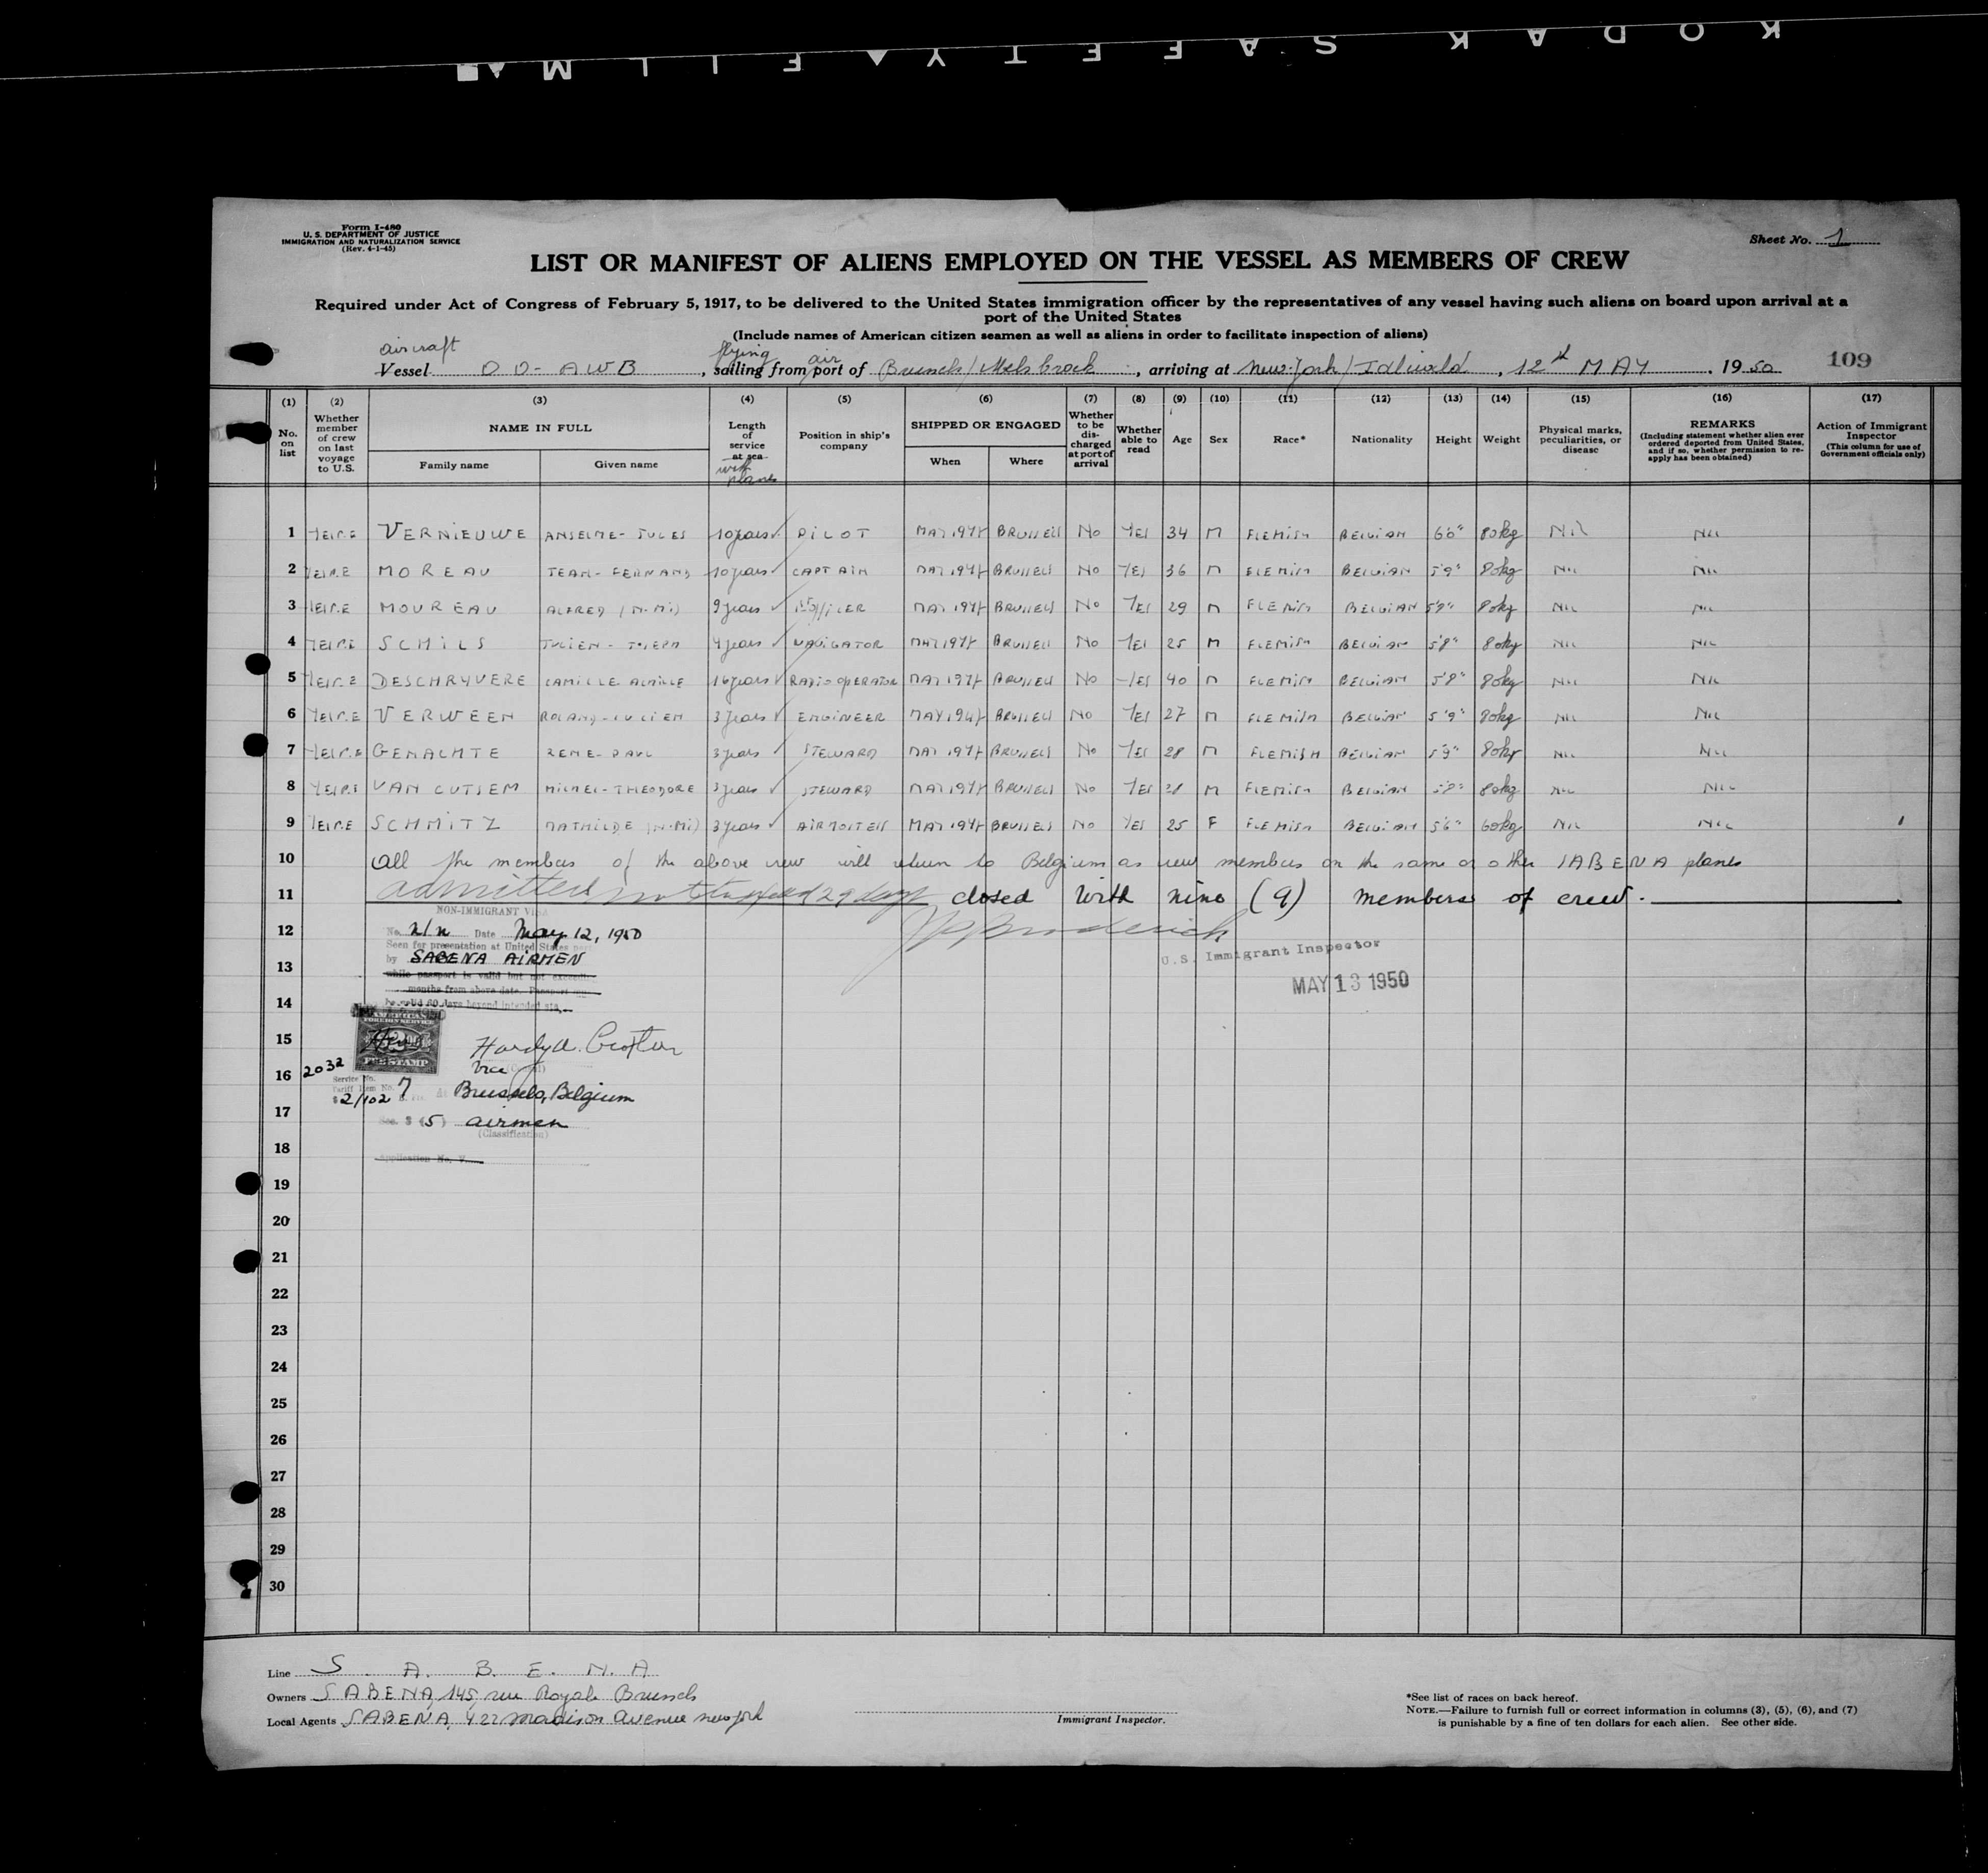 KODAK SAFETY FILM
Form I-480
U. S. DEPARTMENT OF JUSTICE
IMMIGRATION AND NATURALIZATION SERVICE
(Rev. 4-1-45)
Sheet No. 1
LIST OR MANIFEST OF ALIENS EMPLOYED ON THE VESSEL AS MEMBERS OF CREW
Required under Act of Congress of February 5, 1917, to be delivered to the United States immigration officer by the representatives of any vessel having such aliens on board upon arrival at a
port of the United States
(Include names of American citizen seamen as well as aliens in order to facilitate inspection of aliens)
aircraft flying air
Vessel OO-AWB, sailing from port of Brussels/Melsbroek, arriving at New-York/Idlewild, 12th MAY, 1950 109
(1) (2) (3) (4) (5) (6) (7) (8) (9) (10) (11) (12) (13) (14) (15) (16) (17)
No. on list
Whether member of crew on last voyage to U.S.
NAME IN FULL
Family name
Given name
Length of service at sea
with planes
Position in ship's company
SHIPPED OR ENGAGED
When
Where
Whether to be discharged at port of arrival
Whether able to read
Age
Sex
Race*
Nationality
Height
Weight
Physical marks, peculiarities, or disease
REMARKS
(Including statement whether alien ever ordered deported from United States, and if so, whether permission to re-apply has been obtained)
Action of Immigrant Inspector
(This column for use of Government officials only)
1 VERNIEUWE ANSELME-JULES 10 years PILOT BRUSSELS No Yes 34 M FLEMISH BELGIAN 6'0" 80kg Nil Nil
2 MOREAU JEAN-FERNAND 10 years CAPTAIN BRUSSELS No Yes 36 M FLEMISH BELGIAN 5'9" 80kg Nil Nil
3 MOUREAU ALFRED (N.Mi) 9 years 1st OFFICER BRUSSELS No Yes 29 M FLEMISH BELGIAN 80kg Nil Nil
4 SCHILS JULIEN-JOSEPH 4 years NAVIGATOR BRUSSELS No Yes 25 M FLEMISH BELGIAN 5'8" 80kg Nil Nil
5 DESCHRYVERE CAMILLE ACHILLE 16 years RADIO OPERATOR BRUSSELS No Yes 40 M FLEMISH BELGIAN 5'8" 80kg Nil Nil
6 VERWEEN ROLAND-LUCIEN 3 years ENGINEER BRUSSELS No Yes 27 M FLEMISH BELGIAN 5'9" 80kg Nil Nil
7 GEMACHTE RENE-PAUL 3 years STEWARD BRUSSELS No Yes 28 M FLEMISH BELGIAN 5'9" 80kg Nil Nil
8 VAN CUTSEM MICHEL-THEODORE 3 years STEWARD BRUSSELS No Yes M FLEMISH BELGIAN 80kg Nil Nil
9 SCHMITZ MATHILDE (N.Mi) 3 years AIRHOSTESS BRUSSELS No Yes 25 F FLEMISH BELGIAN 5'6" 60kg Nil Nil
10 All the members of the above crew will return to Belgium as crew members on the same or other SABENA planes
11 admitted not to exceed 29 days closed with nine (9) members of crew.
NON-IMMIGRANT VISA
12 No. Date May 12, 1950
Seen for presentation at United States port
by SABENA AIRMEN
U.S. Immigrant Inspector
13 while passport is valid but not exceeding
months from above date.
MAY 13 1950
14 be valid 60 days beyond intended
AMERICAN
FOREIGN SERVICE
FEE STAMP
15
Vice
16 2032
Service No.
Tariff Item No. 7
Brussels, Belgium
17
Sec. 3 (5) airmen
(Classification)
18
Application No. V
19
20
21
22
23
24
25
26
27
28
29
30
Line S.A.B.E.N.A
Owners SABENA, 145, rue Royale Brussels
Local Agents SABENA, 422 Madison Avenue New York
Immigrant Inspector.
*See list of races on back hereof.
NOTE.—Failure to furnish full or correct information in columns (3), (5), (6), and (7)
is punishable by a fine of ten dollars for each alien. See other side.